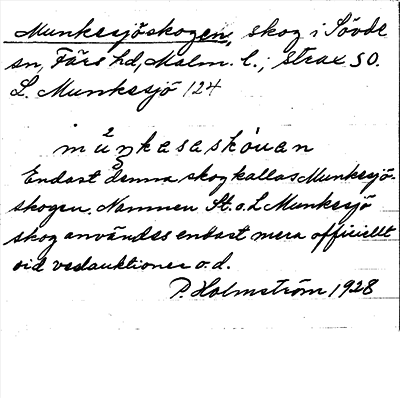 Munkesjöskogen, skog i Sövde
sn, Färs hd, Malm. l.; strax SO.
L. Munkesjö 124
Endast denna skog kallas Munkesjö-
skogen. Namnen St. o. L Munkesjö
skog användes endast mera officiellt
vid vedauktioner o.d.
P. Holmström 1928